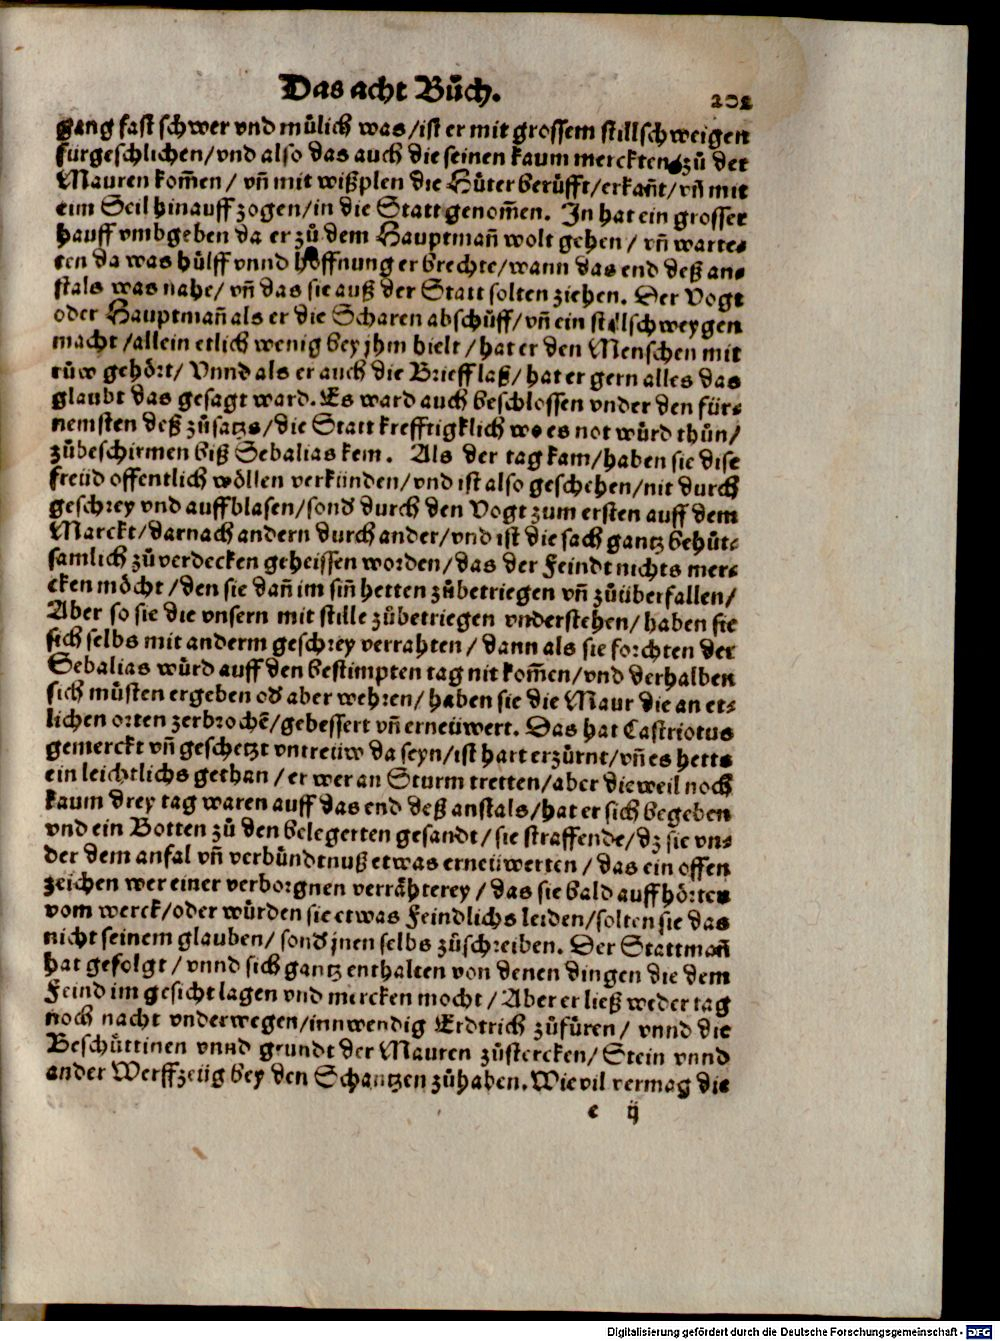 Das acht Bůch. 202
gang fast schwer vnd mülich was/ist er mit grossem stillschweigen
fürgeschlichen/vnd also das auch die seinen kaum merckten/zů der
Mauren kom̄en/ vn̄ mit wißplen die Hüter berüfft/erkan̄t/vn̄ mit
eim Seil hinauff zogen/in die Statt genom̄en. In hat ein grosser
hauff vmbgeben da er zů dem Hauptman̄ wolt gehen/ vn̄ warte-
ten da was hülff vnnd hoffnung er brechte/wann das end deß an-
stals was nahe/ vn̄ das sie auß der Statt solten ziehen. Der Vogt
oder Hauptman̄ als er die Scharen abschůff/vn̄ ein stillschweygen
macht/allein etlich wenig bey jhm bielt/hat er den Menschen mit
rüw gehört/ Vnnd als er auch die Brieff laß/hat er gern alles das
glaubt das gesagt ward. Es ward auch beschlossen vnder den für-
nemsten deß zůsatzs/die Statt krefftigklich wo es not würd thůn/
zůbeschirmen biß Sebalias kem. Als der tag kam/haben sie dise
freüd offentlich wöllen verkünden/vnd ist also geschehen/nit durch
geschrey vnd auffblasen/sond̄ durch den Vogt zum ersten auff dem
Marckt/darnach andern durch ander/vnd ist die sach gantz behůt-
samlich zůverdecken geheissen worden/das der Feindt nichts mer-
cken möcht/den sie dan̄ im sin̄ hetten zůbetriegen vn̄ zůüberfallen/
Aber so sie die vnsern mit stille zůbetriegen vnderstehen/haben sie
sich selbs mit anderm geschrey verrahten/dann als sie forchten der
Sebalias würd auff den bestimpten tag nit kom̄en/vnd derhalben
sich müsten ergeben od̄ aber wehren/haben sie die Maur die an et-
lichen orten zerbrochē/gebessert vn̄ erneüwert. Das hat Castriotus
gemerckt vn̄ geschetzt vntreüw da seyn/ist hart erzürnt/vn̄ es hette
ein leichtlichs gethan/er wer an Sturm tretten/aber dieweil noch
kaum drey tag waren auff das end deß anstals/hat er sich begeben
vnd ein Botten zů den belegerten gesandt/sie straffende/dz sie vn-
der dem anfal vn̄ verbündtnuß etwas erneüwerten/das ein offen
zeichen wer einer verborgnen verrähterey/das sie bald auffhörten
vom werck/oder würden sie etwas Feindlichs leiden/solten sie das
nicht seinem glauben/ sond̄ jnen selbs zůschreiben. Der Stattman̄
hat gefolgt/vnnd sich gantz enthalten von denen dingen die dem
Feind im gesicht lagen vnd mercken mocht/Aber er ließ weder tag
noch nacht vnderwegen/innwendig Erdtrich zůfüren/ vnnd die
Beschüttinen vnnd grundt der Mauren zůstercken/Stein vnnd
ander Werffzeüg bey den Schantzen zůhaben. Wie vil vermag die
c ij
Digitalisierung gefördert durch die Deutsche Forschungsgemeinschaft - DFG